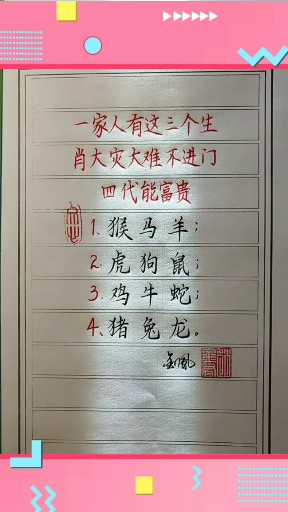 一家人有这三个生
肖大灾大难不进门
四代能富贵
1、猴马羊；
2、虎狗鼠；
3、鸡牛蛇；
4、猪兔龙。